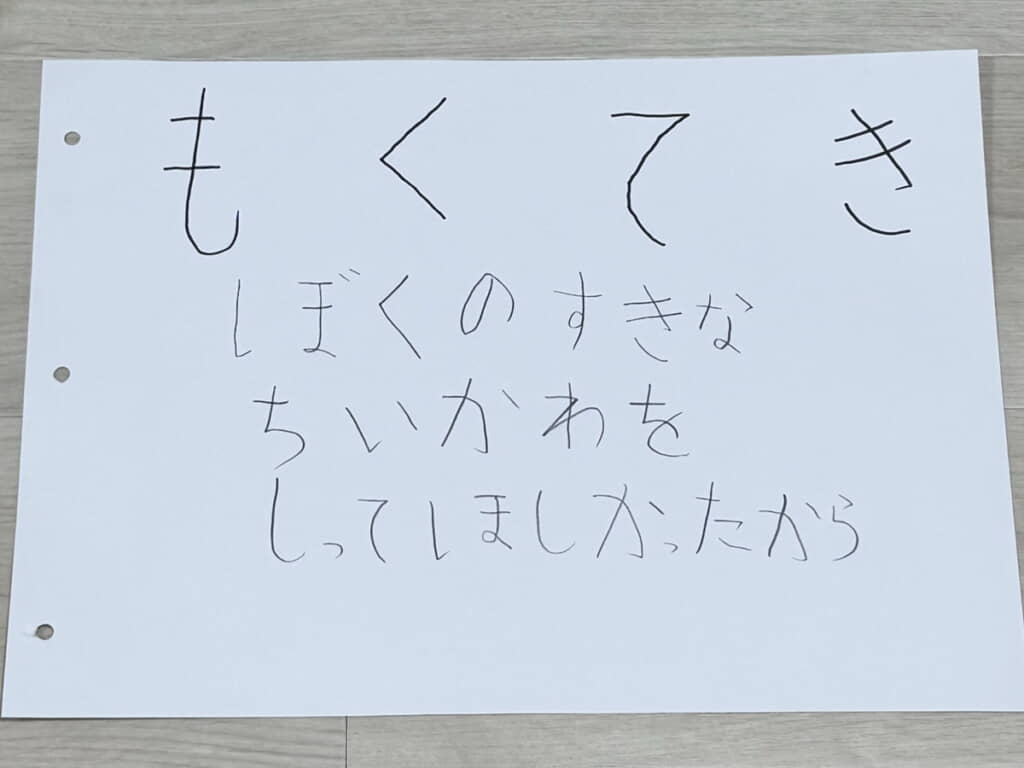 もくてき
ぼくのすきな
ちいかわを
しってほしかったから